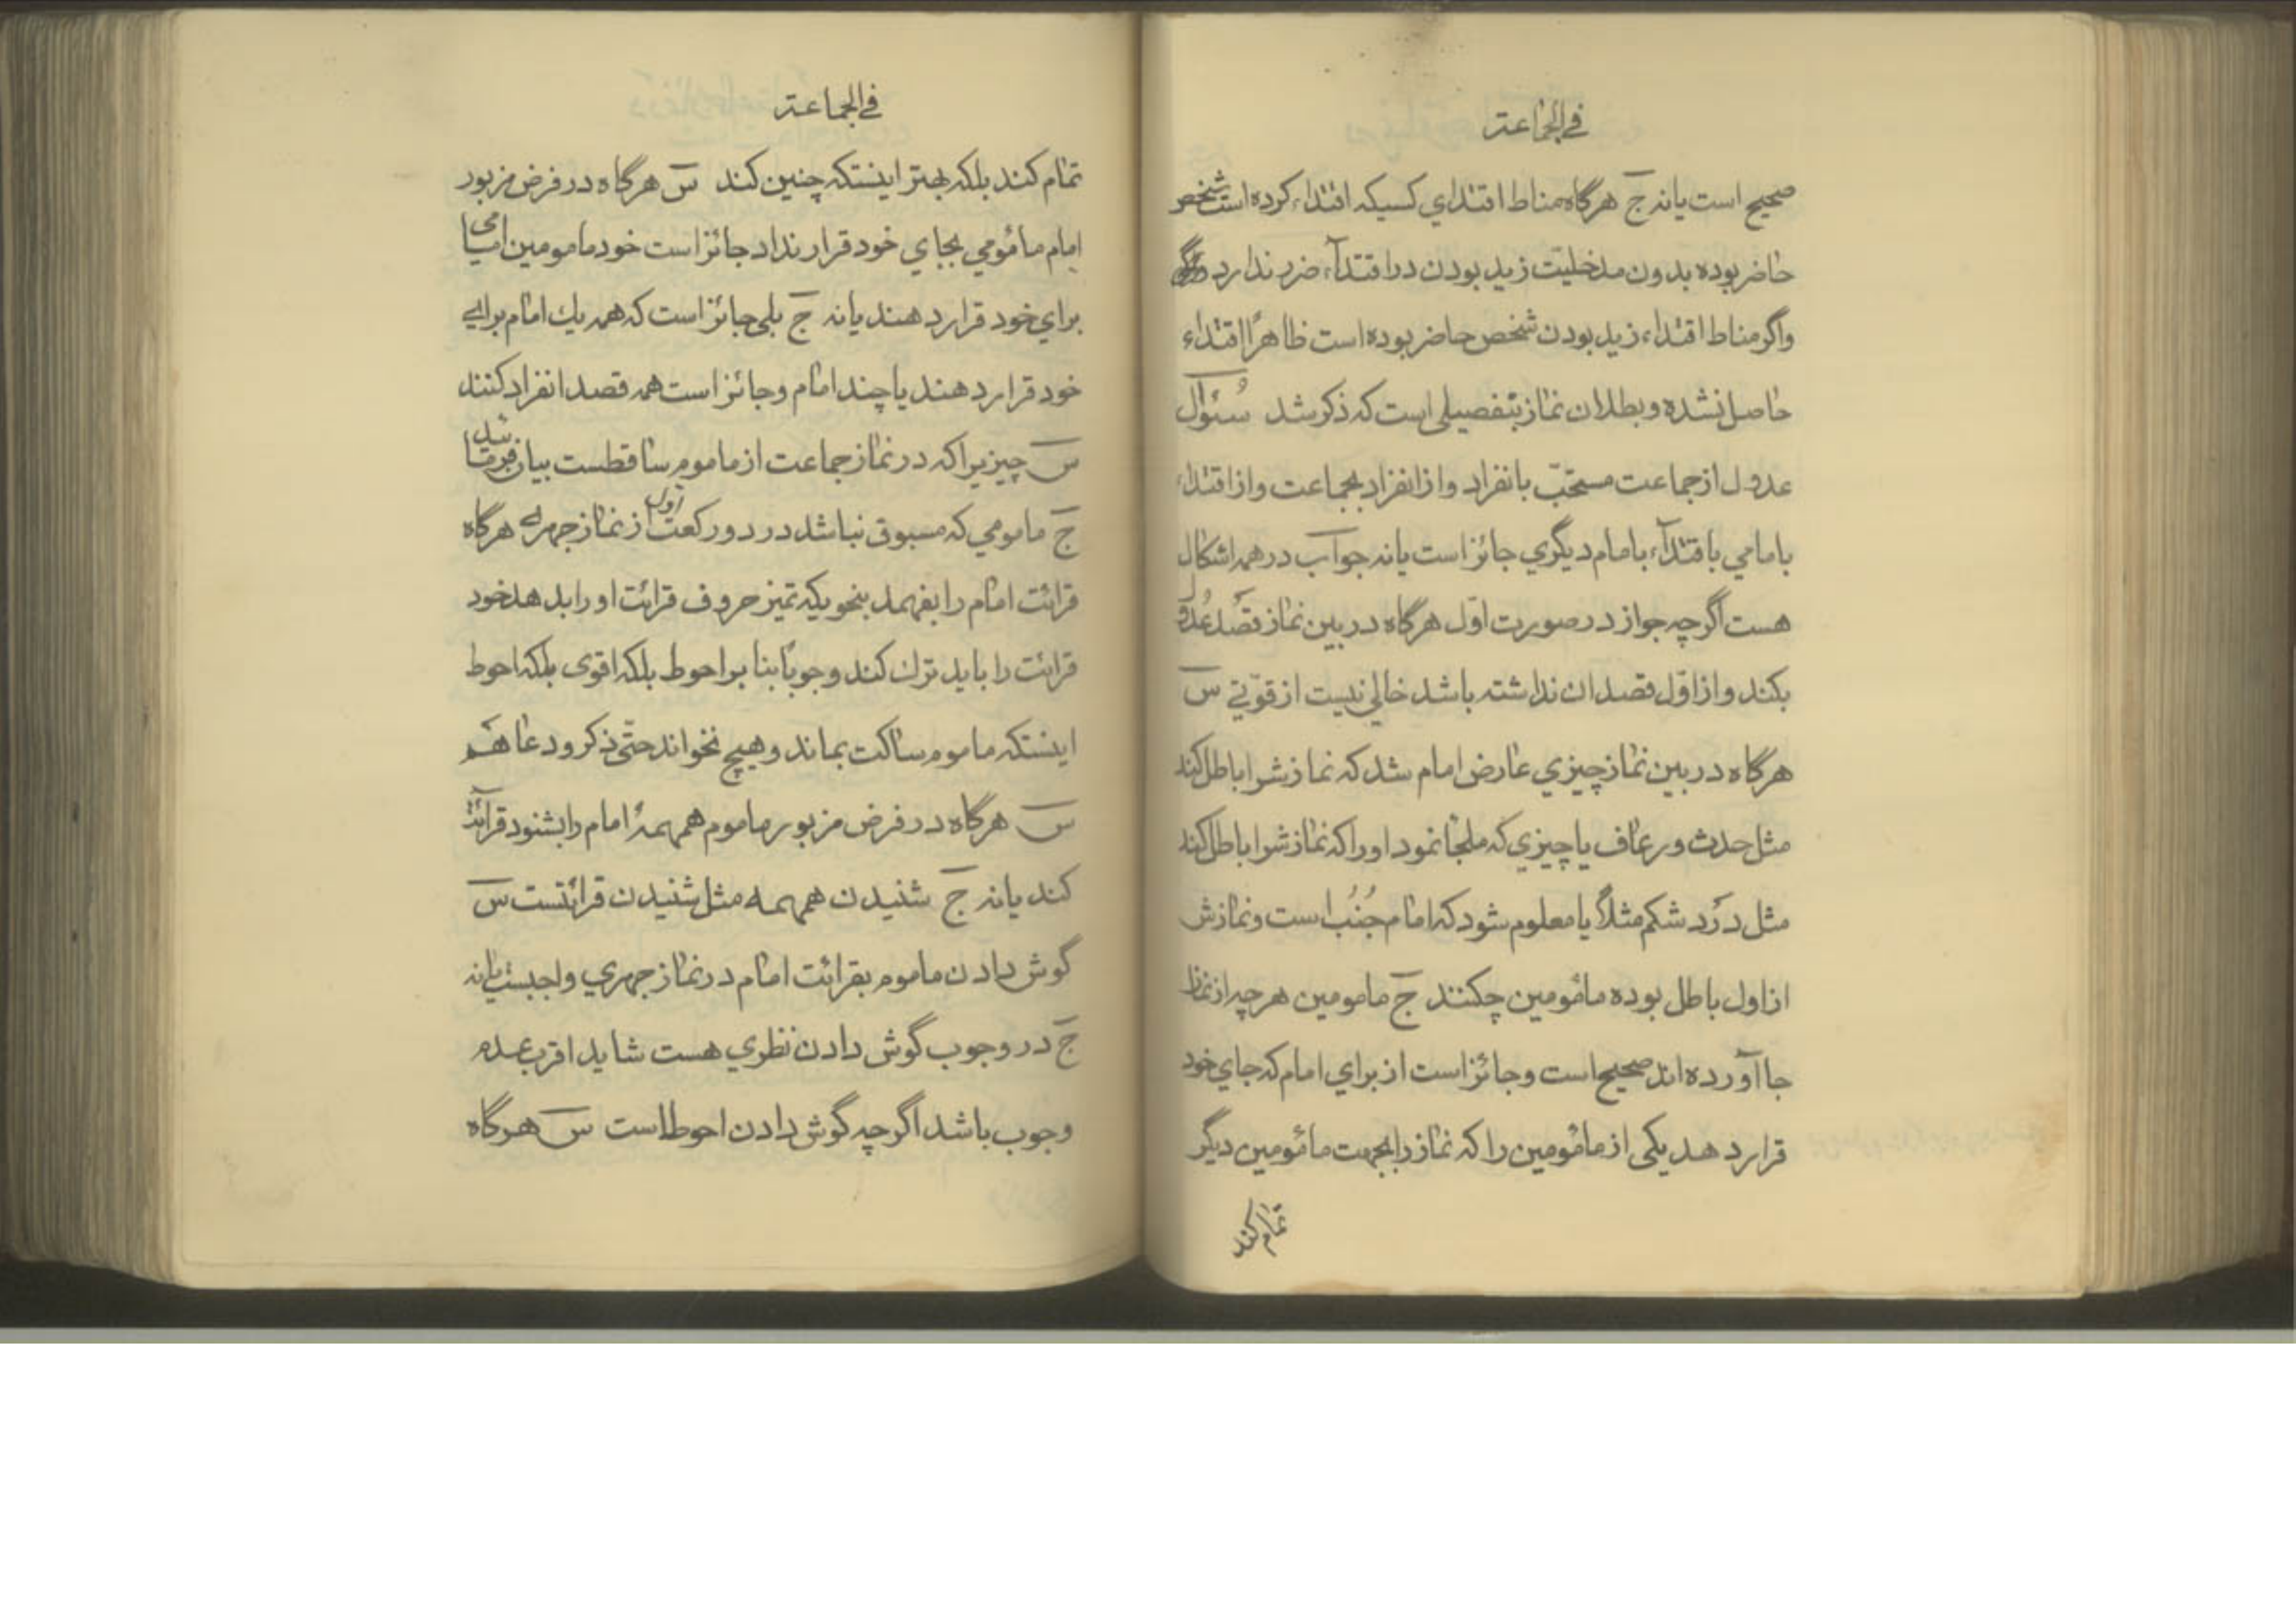 في الجماعة
صحیح است یا نه ج هرگاه مناط اقتدای کسیکه اقتداء کرده است شخص
حاضر بوده بدون مدخلیّت زید بودن در اقتدآء ضرر ندارد
واگر مناط اقتداء زید بودن شخص حاضر بوده است ظاهرًا اقتداء
حاصل نشده و بطلان نماز بتفصیلی است که ذکر شد سُئوال
عدول از جماعت مستحبّ بانفراد و از انفراد بجماعت و از اقتداء
بامامي باقتدآء بامام دیگري جائز است یا نه جواب در همه اشکال
هست اگرچه جواز در صورت اوّل هرگاه در بین نماز قصد عُدول
بکند و از اوّل قصد ان نداشته باشد خالي نیست از قوّتي س
هرگاه در بین نماز چیزي عارض امام شد که نمازشرا باطل کند
مثل حدث و رعاف یا چیزي که ملجأ نمود اورا که نمازشرا باطل کند
مثل درد شکم مثلاً یا معلوم شود که امام جُنُب است و نمازش
از اول باطل بوده مأمومین چکنند ج مامومین هرچه از نماز
جا آورده اند صحیح است و جائز است از براي امام که جاي خود
قرار دهد یکی از مأمومین را که نماز را بجهت مأمومین دیگر
تمام کند
في الجماعة
تمام کند بلکه بهتر اینستکه چنین کند س هرگاه در فرض مزبور
امام مأمومي بجاي خود قرار نداد جائز است خود مامومین امامی
براي خود قرار دهند یا نه ج بلی جائز است که همه یك امام براي
خود قرار دهند یا چند امام و جائز است همه قصد انفراد کنند
س چیزیرا که در نماز جماعت از ماموم ساقطست بیان فرمائید
ج مامومي که مسبوق نباشد در دو رکعت اول از نماز جهري هرگاه
قرائت امام را بفهمد بنحویکه تمیز حروف قرائت اورا بدهد خود
قرائت را باید ترك کند وجوبًا بنا بر احوط بلکه اقوی بلکه احوط
اینستکه ماموم ساکت بماند و هیچ نخواند حتّی ذکر و دعا هم
س هرگاه در فرض مزبور ماموم همهمهٔ امام را بشنود قرائت
کند یا نه ج شنیدن همهمه مثل شنیدن قرائتست س
گوش دادن ماموم بقرائت امام در نماز جهري واجبست یا نه
ج در وجوب گوش دادن نظري هست شاید اقرب عدم
وجوب باشد اگرچه گوش دادن احوط است س هرگاه